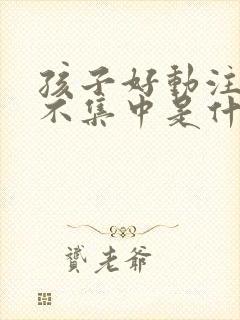 孩子好動注
不集中是什
贊老爺